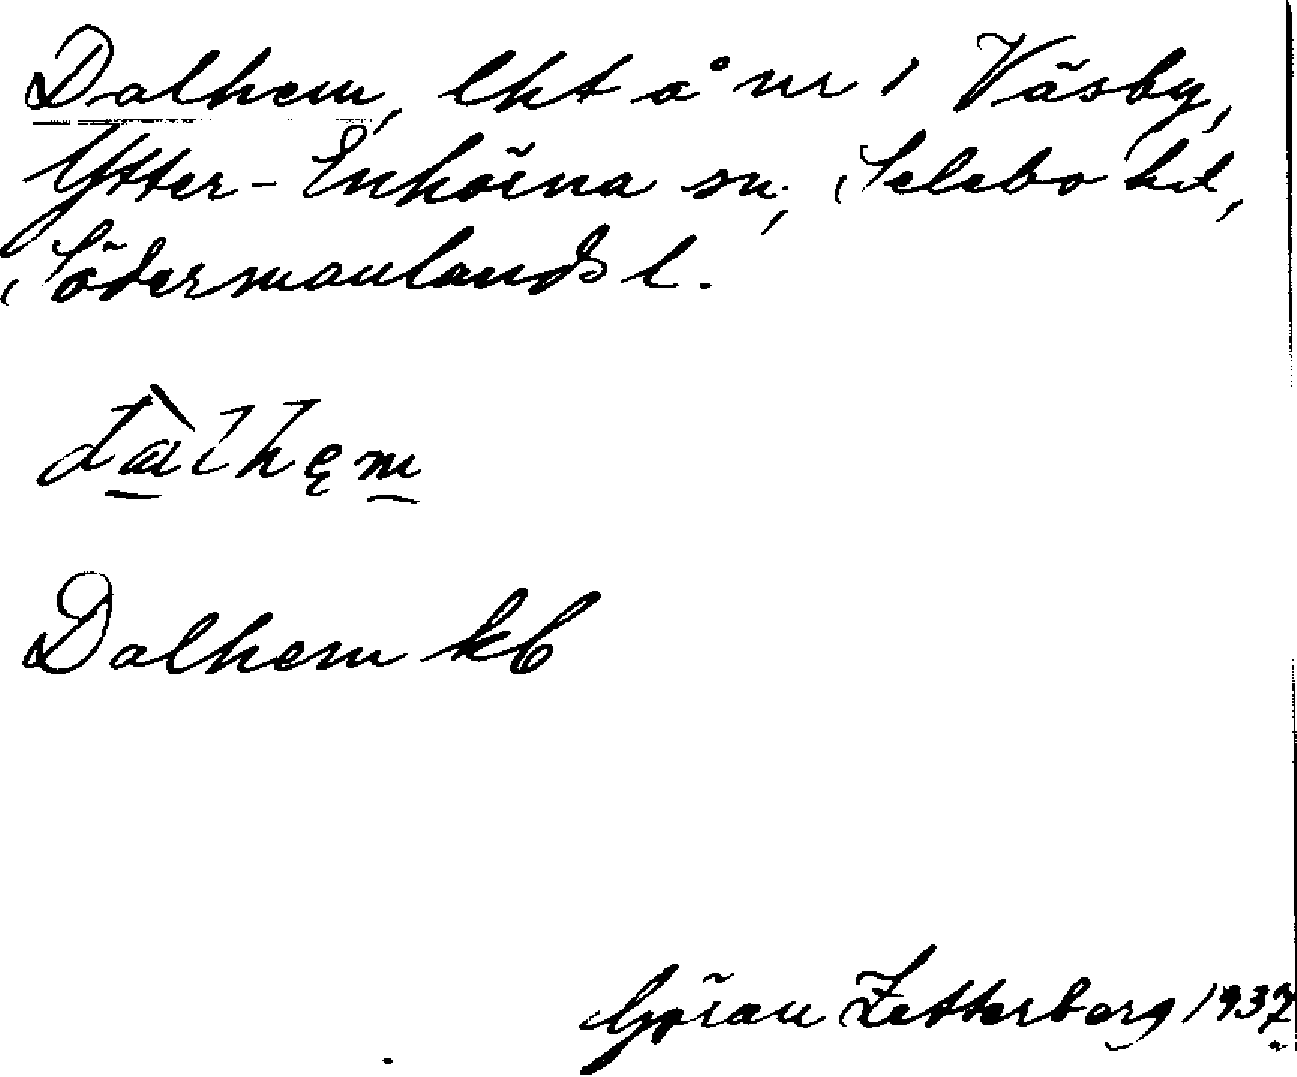 Dalhem, lht å nr 1 Väsby,
Ytter-Enhörna sn, Selebo hd,
Södermanlands l.
dàlhęm
Dalhem kb
Göran Zetterberg 1937